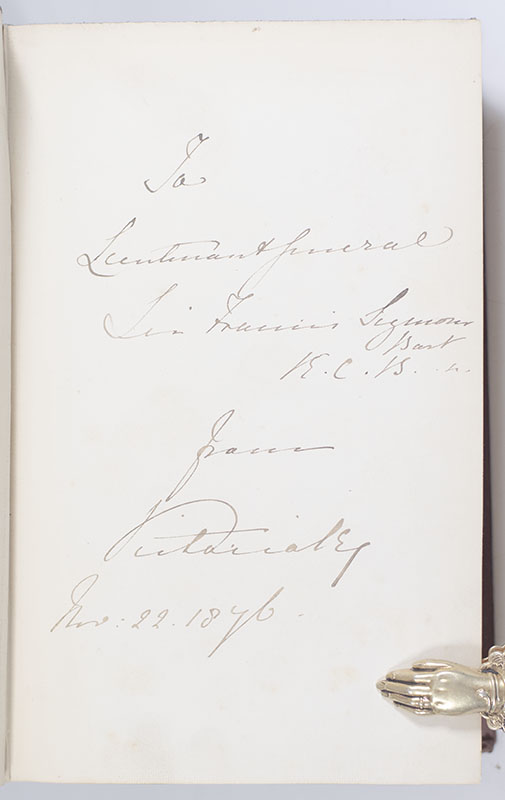 To
Lieutenant General
Sir Francis Seymour
Bart
K.C.B.
from
Victoria R
Nov: 22. 1876.